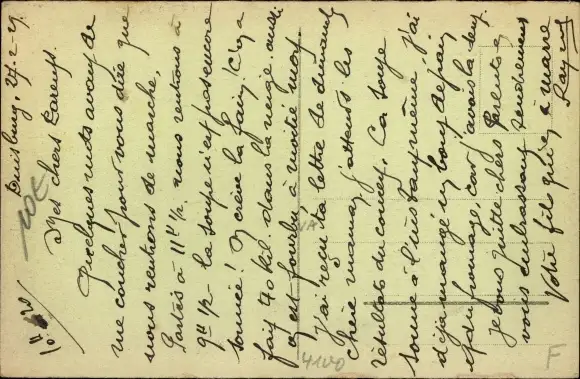 Duisburg, 27-2-29.
Mes chers Parents.
Quelques mots avant de
me coucher pour vous dire que
nous rentrons de marche,
Partis à 11H 1/2, nous rentrons à
9H 1/2 - la soupe n'est pas encore
sonnée! Je crève la faim! On a
fait 40 kil. dans la neige. aussi
on est fourbu à moitié mort.
J'ai reçu ta lettre de dimanche
chère maman, j'attends les
résultats du conseil. La soupe
sonne à l'instant même, j'ai
déjà mangé un bout de pain
et du fromage, car j'avais la dent.
je vous quitte chers Parents en
vous embrassant tendrement
Votre fils qui en a marre
Raymond
4100
F